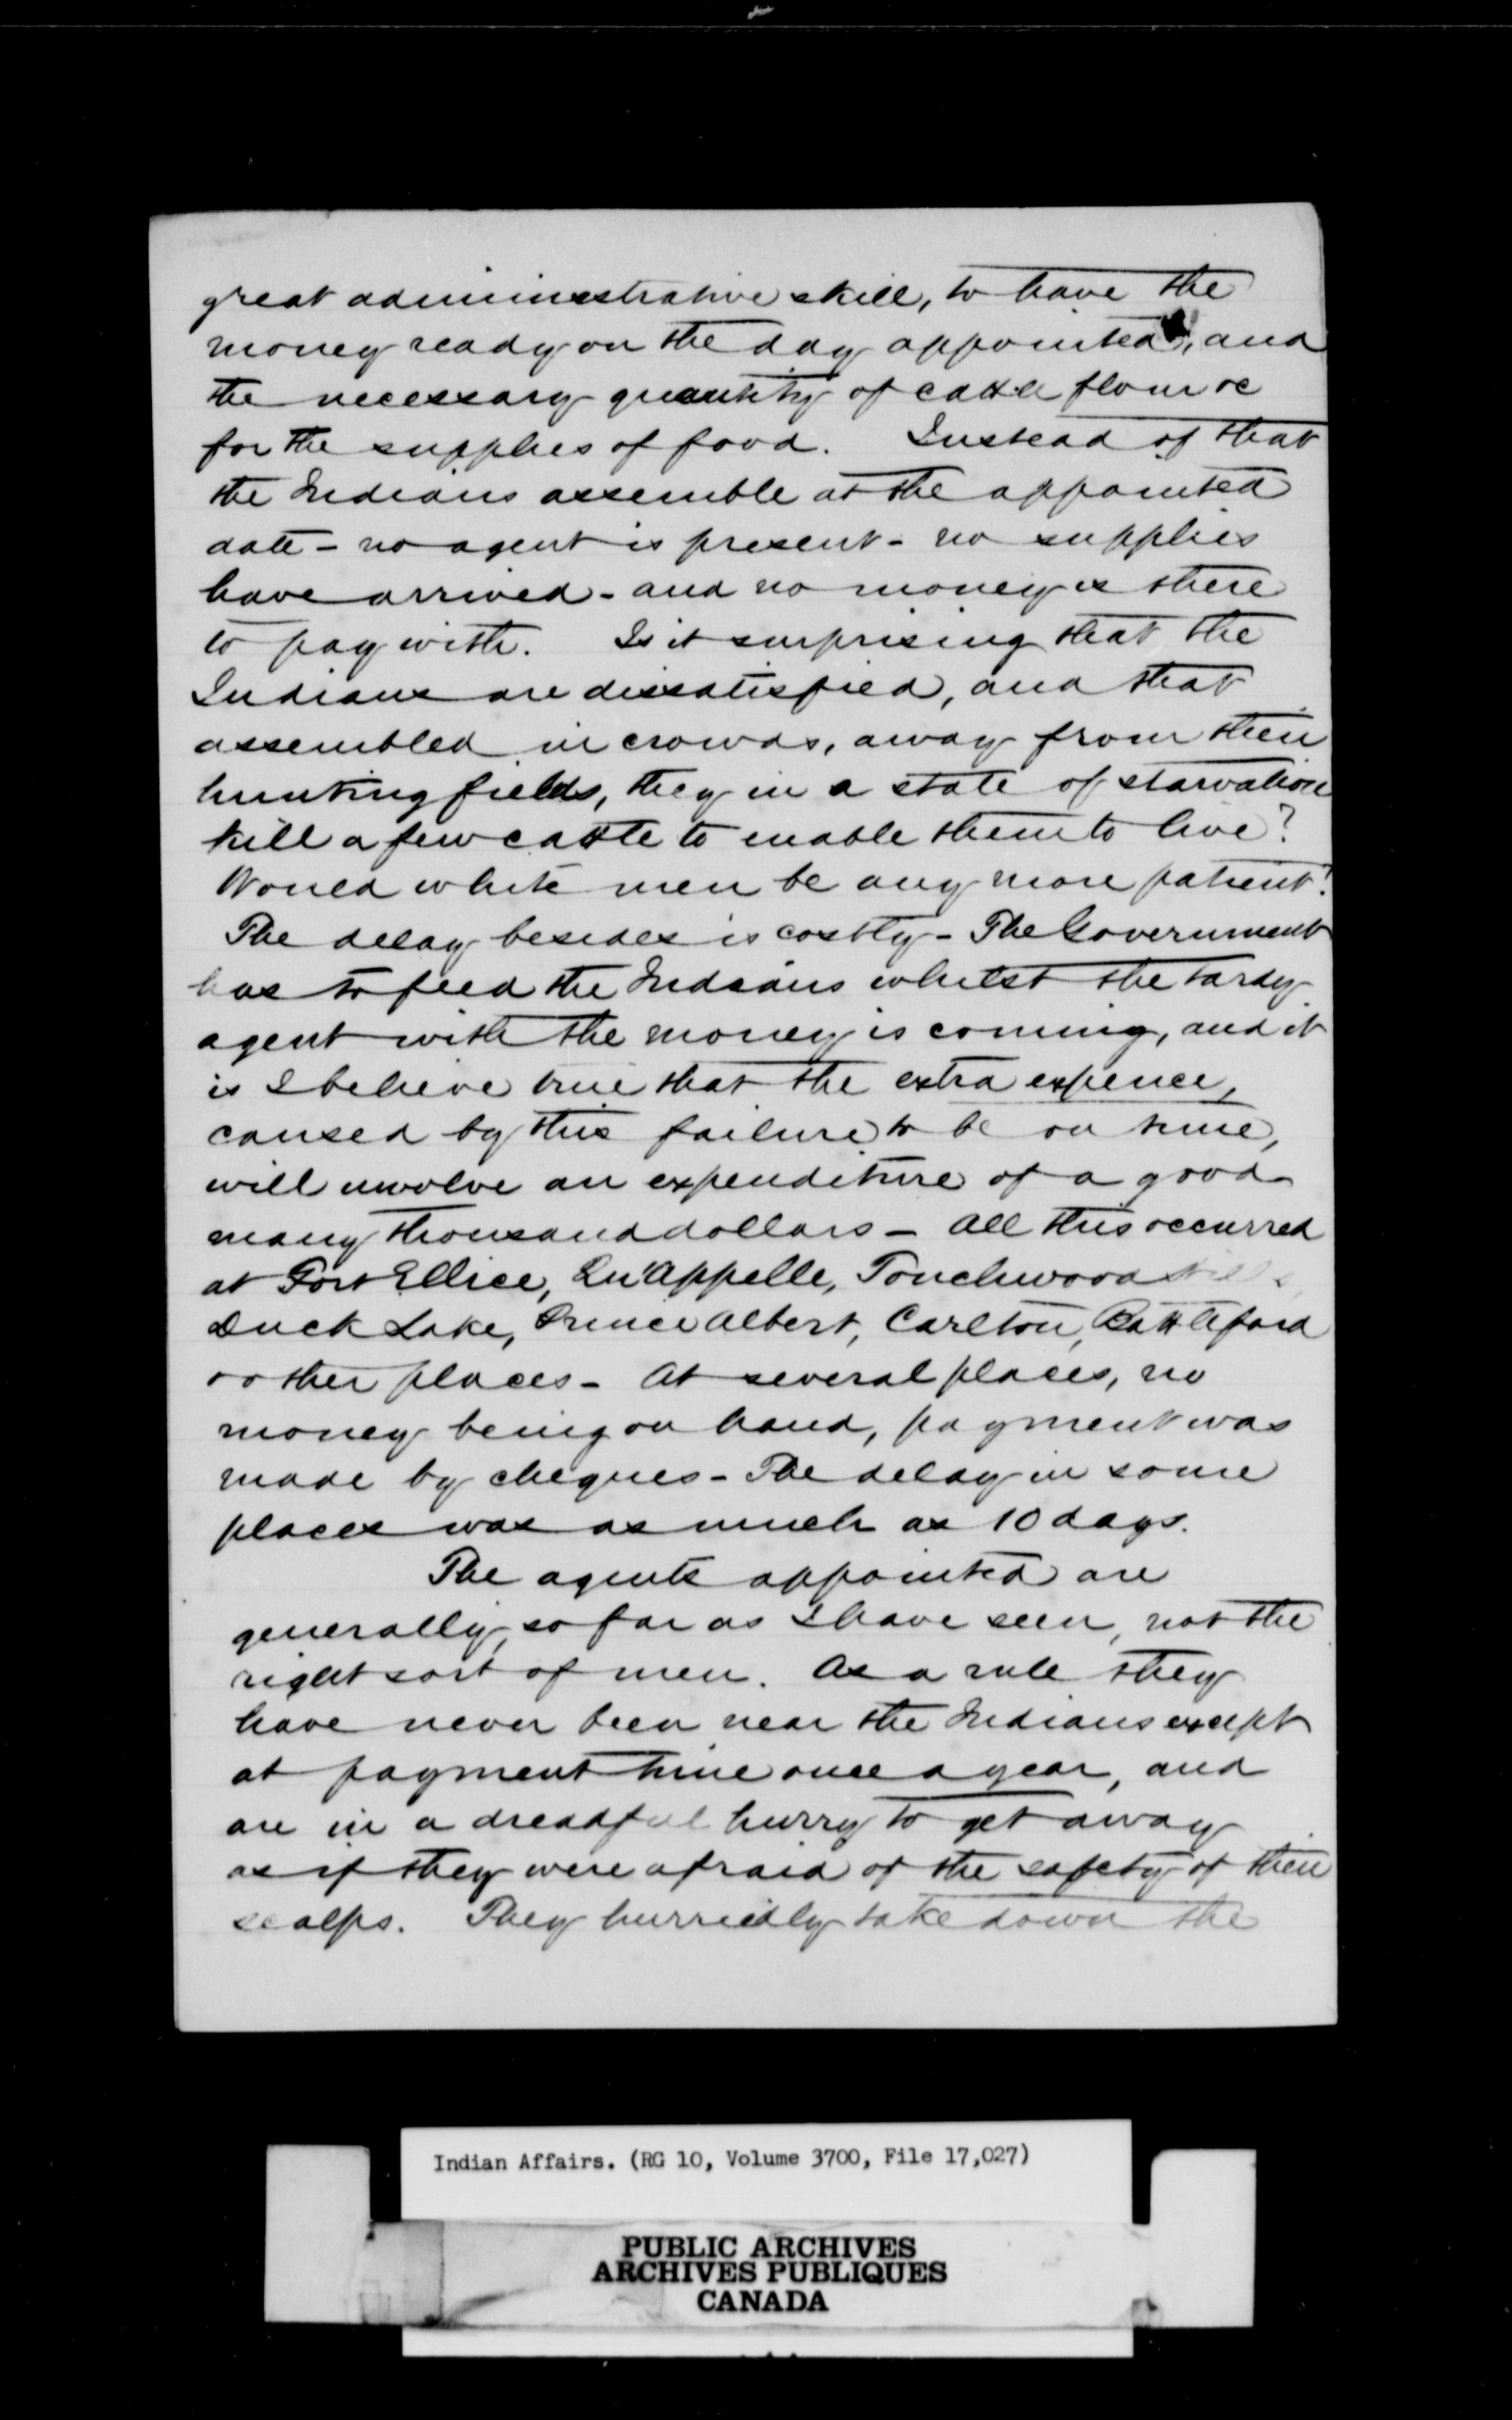 great administrative skill, to have the
money ready on the day appointed, and
the necessary quantity of cattle flour &c
for the supplies of food. Instead of that
the Indians assemble at the appointed
date - no agent is present - no supplies
have arrived - and no money is there
to pay with. Is it surprising that the
Indians are dissatisfied, and that
assembled in crowds, away from their
hunting fields, they in a state of starvation
kill a few cattle to enable them to live?
Would white men be any more patient?
The delay besides is costly - The Government
has to feed the Indians whilst the tardy
agent with the money is coming, and it
is I believe true that the extra expence,
caused by this failure to be on time,
will involve an expenditure of a good
many thousand dollars - All this occurred
at Fort Ellice, Qu'Appelle, Touchwood Hills,
Duck Lake, Prince Albert, Carlton, Battleford
& other places - At several places, no
money being on hand, payment was
made by cheques - The delay in some
places was as much as 10 days.
The agents appointed are
generally, so far as I have seen, not the
right sort of men. As a rule they
have never been near the Indians except
at payment time once a year, and
are in a dreadful hurry to get away
as if they were afraid of the safety of their
scalps. They hurriedly take down the
Indian Affairs. (RG 10, Volume 3700, File 17,027)
PUBLIC ARCHIVES
ARCHIVES PUBLIQUES
CANADA